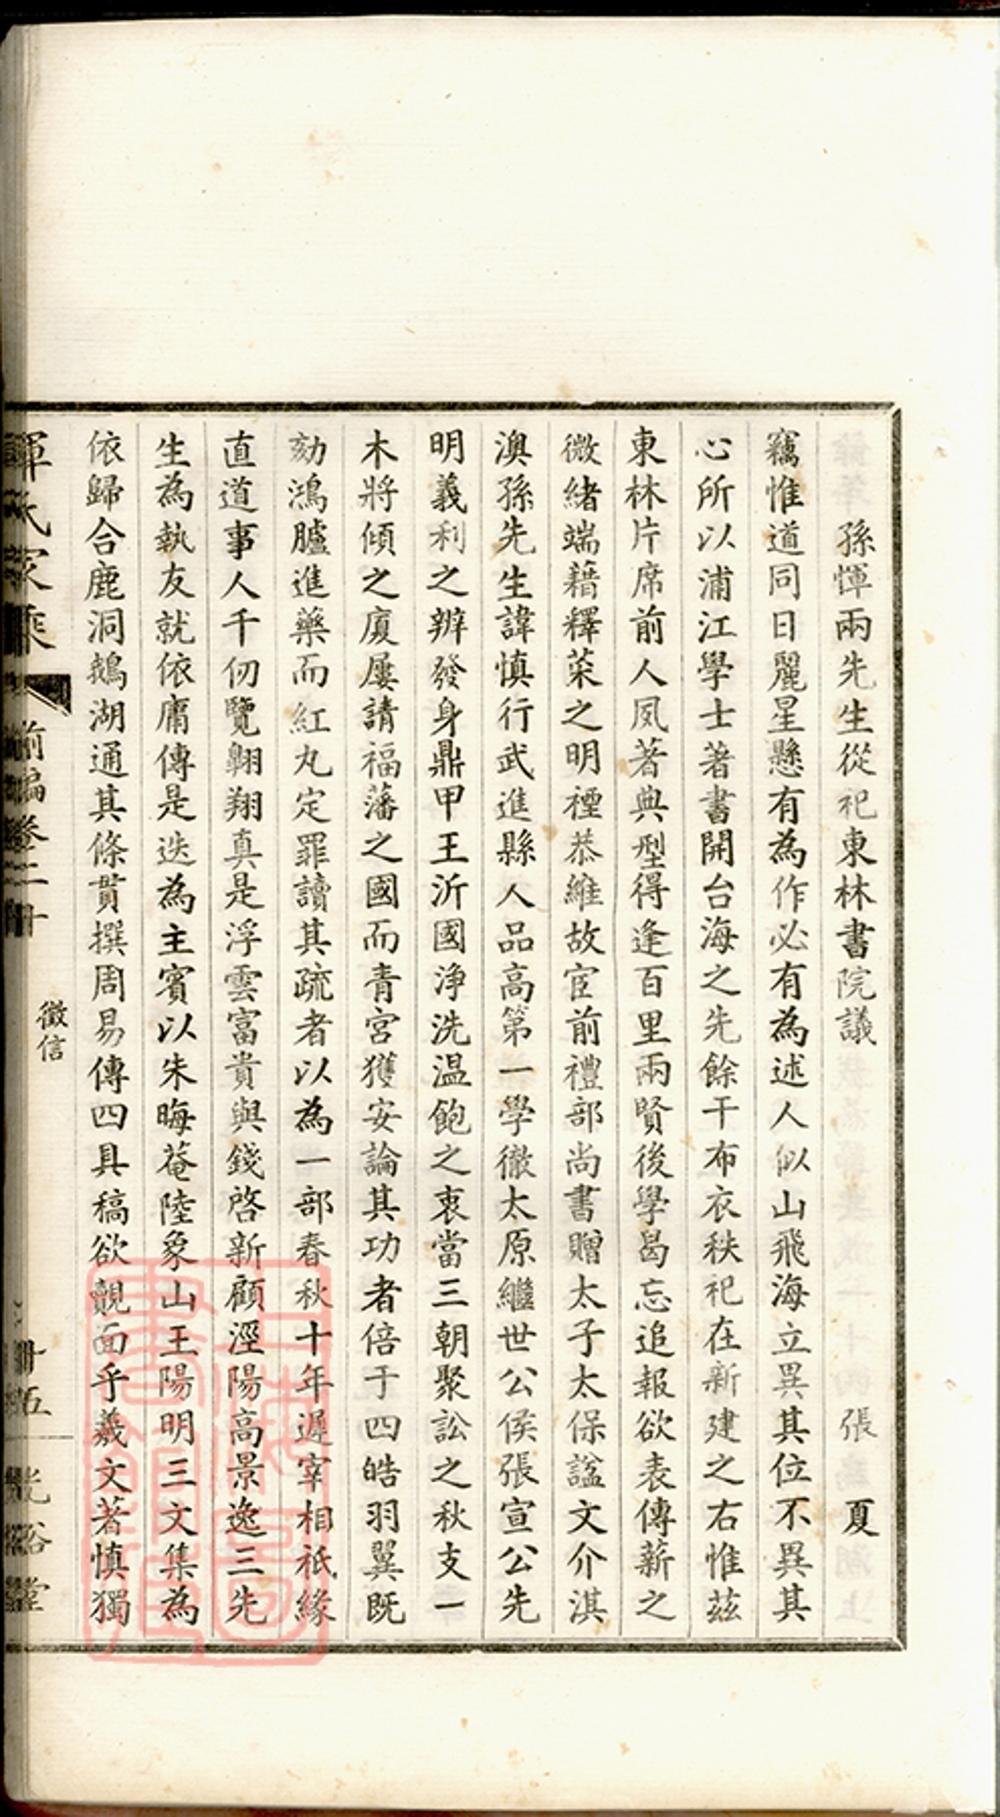 孫惲兩先生從祀東林書院議 張夏
竊惟道同日麗星懸有為作必有為述人似山飛海立異其位不異其
心所以浦江學士著書開台海之先餘干布衣秩祀在新建之右惟茲
東林片席前人夙著典型得逢百里兩賢後學曷忘追報欲表傳薪之
微緒端藉釋菜之明禋恭維故宦前禮部尚書贈太子太保諡文介淇
澳孫先生諱慎行武進縣人品高第一學徹太原繼世公侯張宣公先
明義利之辨發身鼎甲王沂國淨洗温飽之衷當三朝聚訟之秋支一
木將傾之廈屢請福藩之國而青宮獲安論其功者倍于四皓羽翼既
劾鴻臚進藥而紅丸定罪讀其疏者以為一部春秋十年遲宰相祇緣
直道事人千仞覽翺翔真是浮雲富貴與錢啓新顧涇陽高景逸三先
生為執友就依庸傳是迭為主賓以朱晦菴陸象山王陽明三文集為
依歸合鹿洞鵝湖通其條貫撰周易傳四具稿欲覿面乎羲文著慎獨
惲氏家乘 前編卷二十 徵信 十五 光裕堂